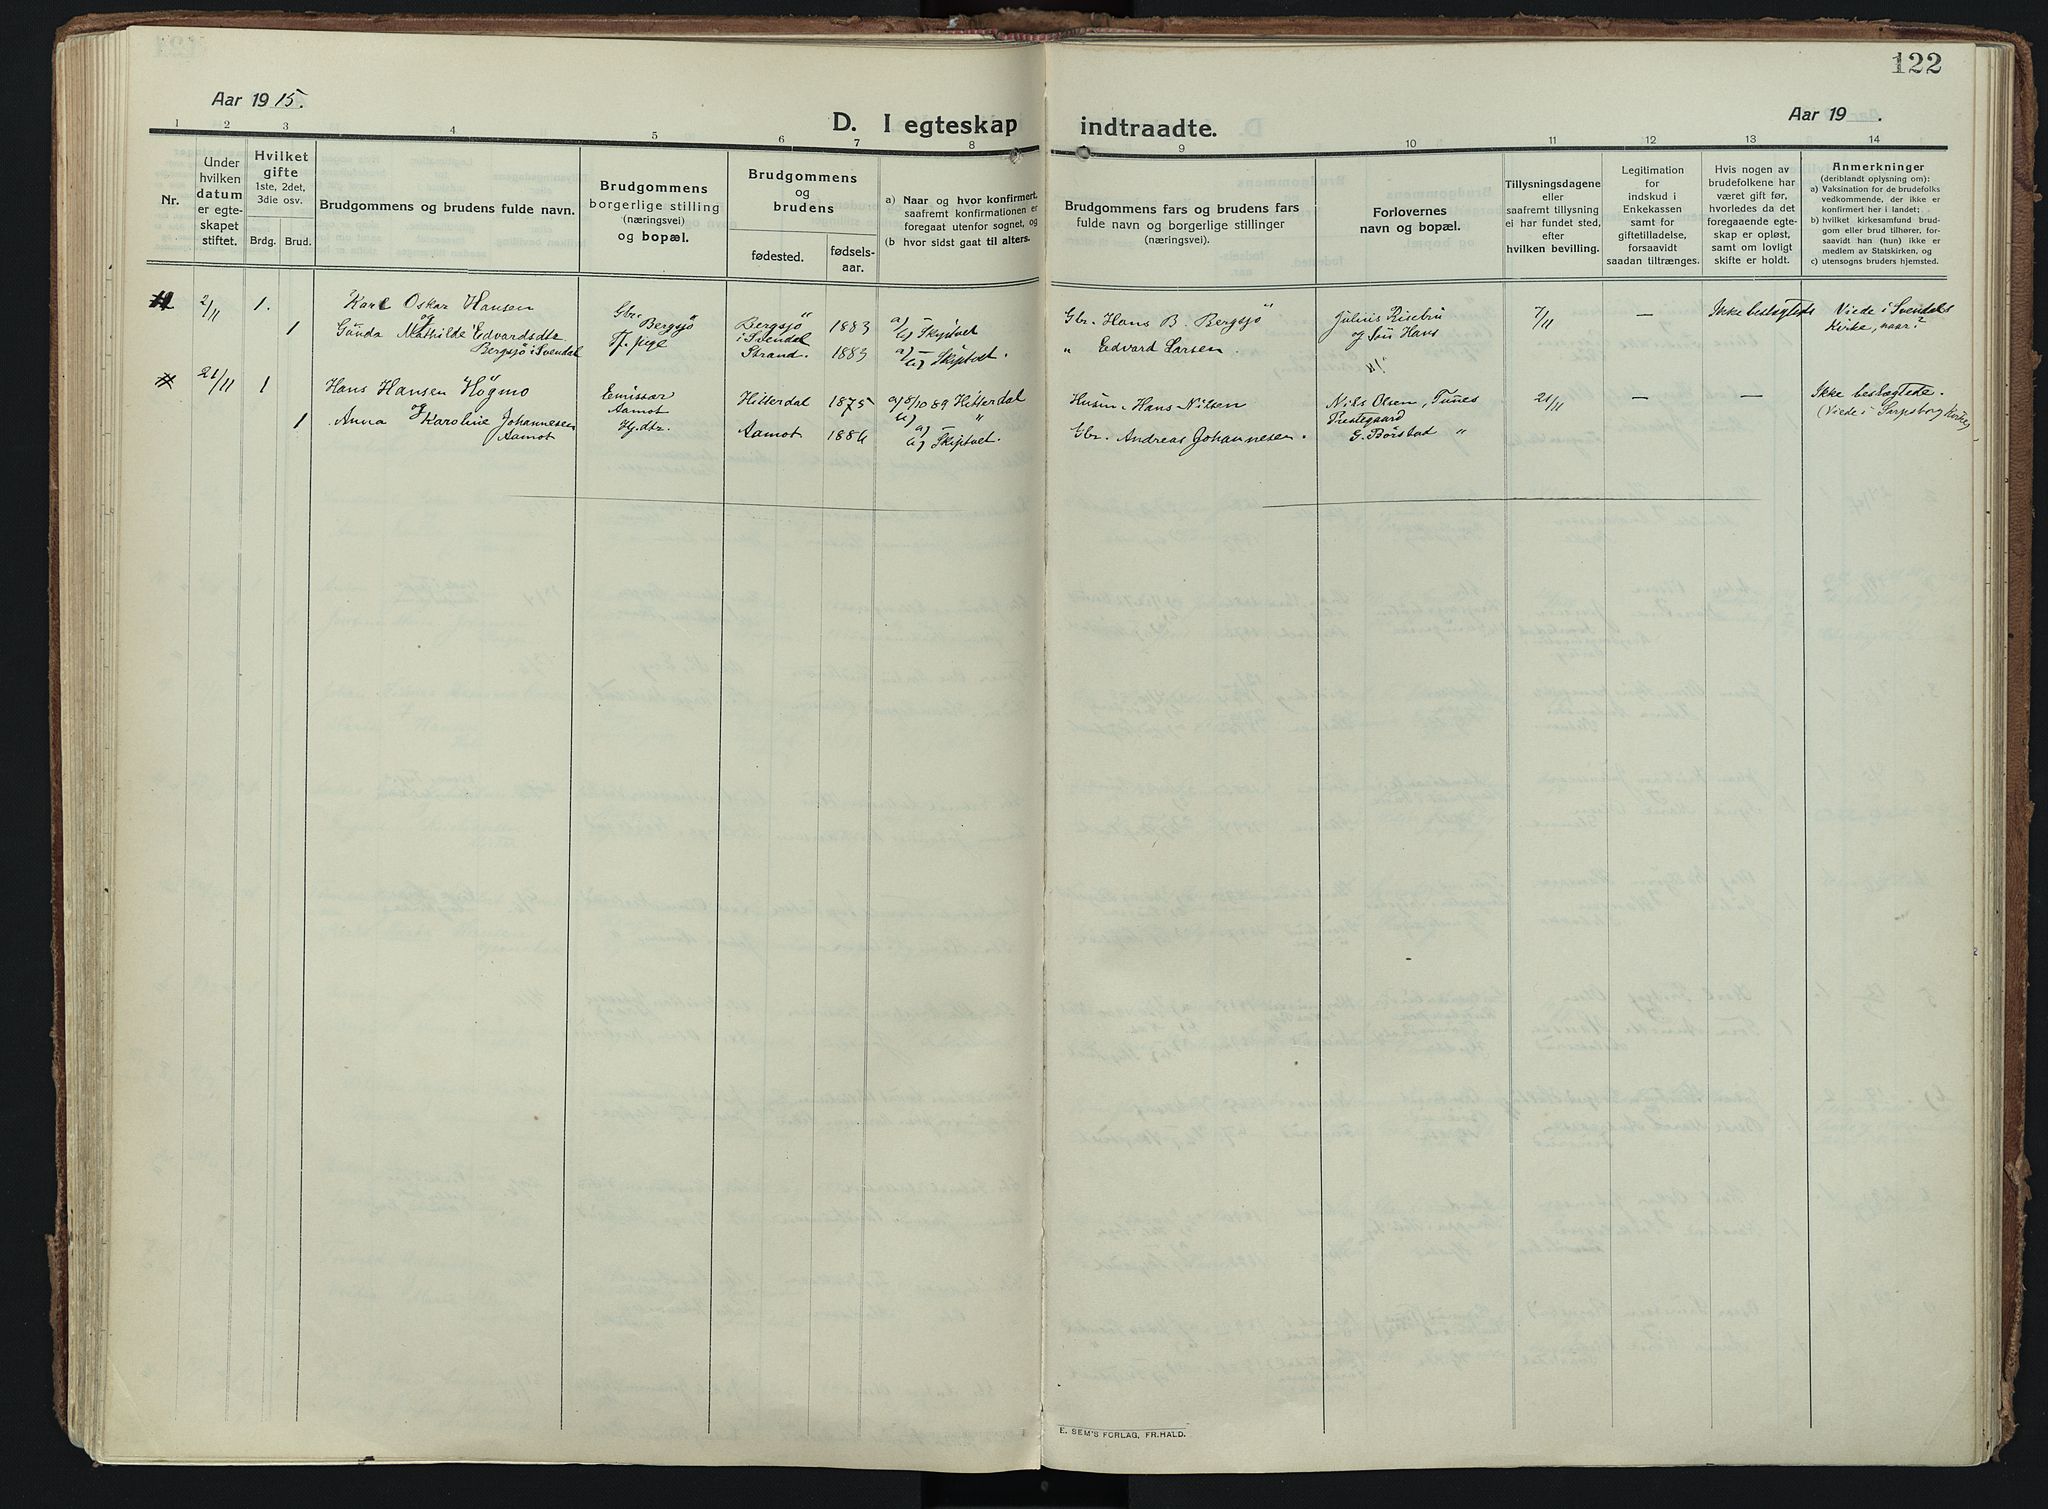 122
Aar 1915.
D. I egteskap indtraadte.
Aar 19 .
1 2 3 4 5 6 7 8 9 10 11 12 13 14
Nr.
Under hvilken datum er egteskapet stiftet.
Hvilket gifte 1ste, 2det, 3die osv.
Brdg. Brud.
Brudgommens og brudens fulde navn.
Brudgommens borgerlige stilling (næringsvei) og bopæl.
Brudgommens og brudens
fødested.
fødselsaar.
a) Naar og hvor konfirmert, saafremt konfirmationen er foregaat utenfor sognet, og
(b hvor sidst gaat til alters.
Brudgommens fars og brudens fars fulde navn og borgerlige stillinger (næringsvei).
Forlovernes navn og bopæl.
Tillysningsdagene eller saafremt tillysning ei har fundet sted, efter hvilken bevilling.
Legitimation for indskud i Enkekassen samt for giftetilladelse, forsaavidt saadan tiltrænges.
Hvis nogen av brudefolkene har været gift før, hvorledes da det foregaaende egteskap er opløst, samt om lovligt skifte er holdt.
Anmerkninger (deriblandt oplysning om):
a) Vaksination for de brudefolks vedkommende, der ikke er konfirmert her i landet;
b) hvilket kirkesamfund brudgom eller brud tilhører, forsaavidt han (hun) ikke er medlem av Statskirken, og
c) utensogns bruders hjemsted.
2/11 1. Karl Oskar Hansen Gbr. Bergsjö Bergsjö i Svendal 1883 a) b) Skiptvet Gbr. Hans B. Bergsjö Julius Risebru 7/11 — Ikke beslegtede Viede i Svendals Kirke, naar?
og
1 Gunda Mathilde Edvardsdtr. Bergsjö i Svendal Tj. pige Strand. 1883 a) b) Skiptvet. " Edvard Larsen. og Hans
21/11 1 Hans Hansen Högmo Emissær Aamot Hitterdal 1875 a) 8/10 89 Hitterdal b) " Husm. Hans Nilsen Nils Olsen, Tunes Prestegaard 21/11 — — Ikke beslægtede. (Viede i Sarpsborg Kirke)
og
1 Anna Karoline Johannesen Aamot Hj. dtr. Aamot 1886 a) b) Skiptvet. Gbr. Andreas Johannesen. G. Börstad "
E. SEM'S FORLAG, FR.HALD.